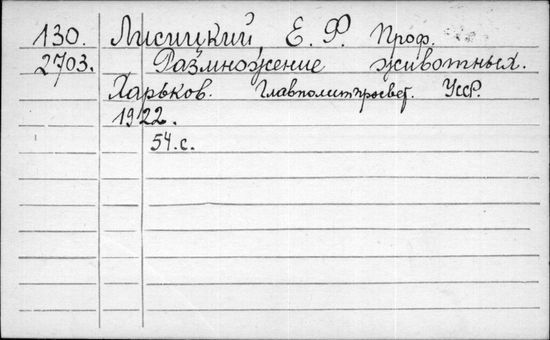 130. Лисицкий Е. Ф. Проф.
2703. Размножение животных.
Харьков. Главполитпросвет. УССР.
1922.
54.с.